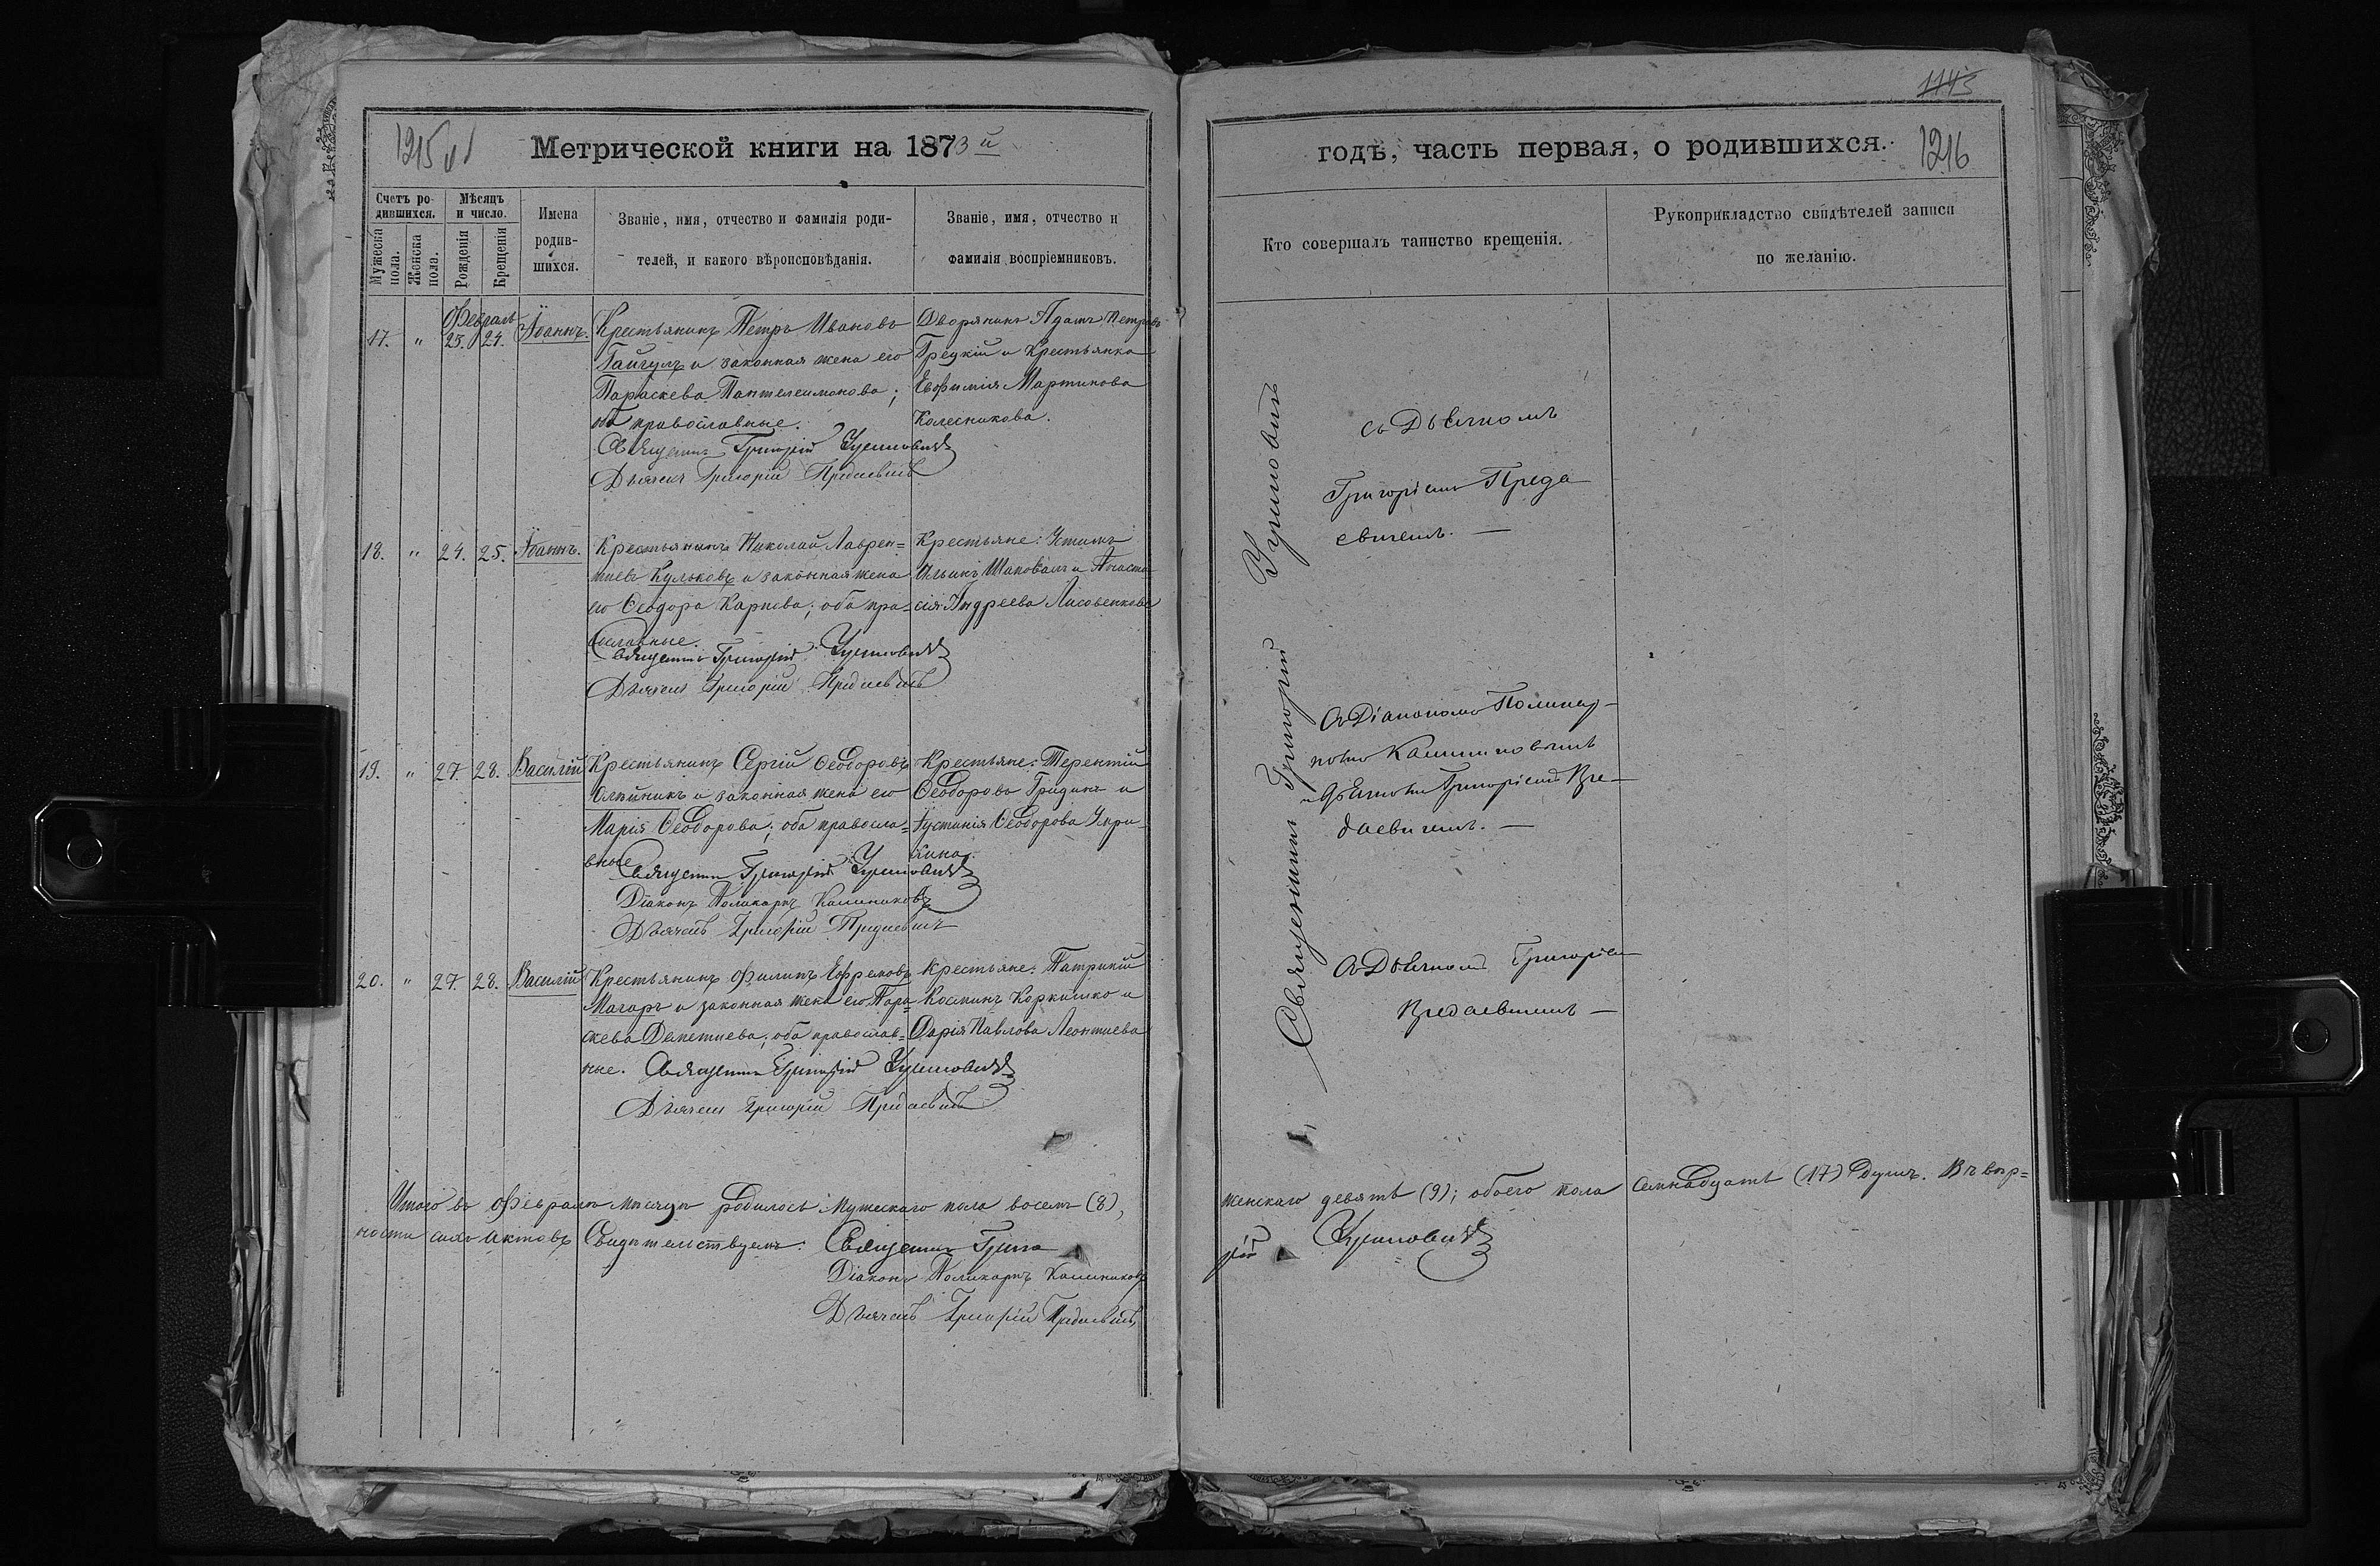 1215
Метрической книги на 1873й
Счетъ ро-
дившихся.
Мужеска пола.
Женска пола.
Мѣсяцъ
и число.
Рожденія
Крещенія
Имена
родив-
шихся.
Званіе, имя, отчество и фамилія роди-
телей, и какого вѣроисповѣданія.
Званіе, имя, отчество и
фамилія воспріемниковъ.
Февраль
17. " 23. 24. Іоаннъ.
Крестьянинъ Петръ Ивановъ
и законная жена его
Параскева Пантелеимонова;
оба православные.
Священникъ Григорій
Дьячекъ Григорій Предаевичъ
Дворянинъ Адамъ Петровъ
Грецкій и Крестьянка
Евфимія Мартинова
Колесникова.
18. " 24. 25. Іоаннъ.
Крестьянинъ Николай Лаврен=
тіевъ Кульковъ и законная жена
его Ѳеодора Карпова; оба пра-
вославные.
Священникъ Григорій
Дьячекъ Григорій Предаевичъ
Крестьяне: Устимъ
Шаповалъ и Анаста-
сія Андреева Лисовенкова
19. " 27. 28. Василій
Крестьянинъ Сергій Ѳеодоровъ
и законная жена его
Марія Ѳеодорова; оба правосла=
вные
Священникъ Григорій
Діаконъ Поликарпъ Калиниковъ
Дьячекъ Григорій Предаевичъ
Крестьяне: Терентій
Ѳеодоровъ Гридинъ и
Іустинія Ѳеодорова
20. " 27. 28. Василій
Крестьянинъ Филипъ Ефремовъ
Магаръ и законная жена его Пара=
скева Дементиева; оба православ=
ные. Священникъ Григорій
Дьячекъ Григорій Предаевичъ
Крестьяне: Патрикій
Косминъ Коркишко и
Дарія Павлова Леонтиева
Итого въ Февралѣ мѣсяцѣ родилось Мужескаго пола восемь (8),
ности сихъ актовъ Свидѣтельствуемъ: Священникъ Григо
Діаконъ Поликарпъ Калиниковъ
Дьячекъ Григорій Предаевичъ
1145
годѣ, часть первая, о родившихся.
1216
Кто совершалъ таинство крещенія.
Рукоприкладство свидѣтелей записи
по желанію.
Священникъ Григорій
съ Дьячкомъ
Григоріемъ Преда
евичемъ. —
Съ Діакономъ Поликар-
помъ Калиниковымъ
и Дьячкомъ Григоріемъ Пре-
даевичемъ. —
Съ Дьячкомъ Григоріем
Предаевичемъ —
женскаго девять (9); обоего пола семнадцать (17) душъ. Въ вѣр=
рій